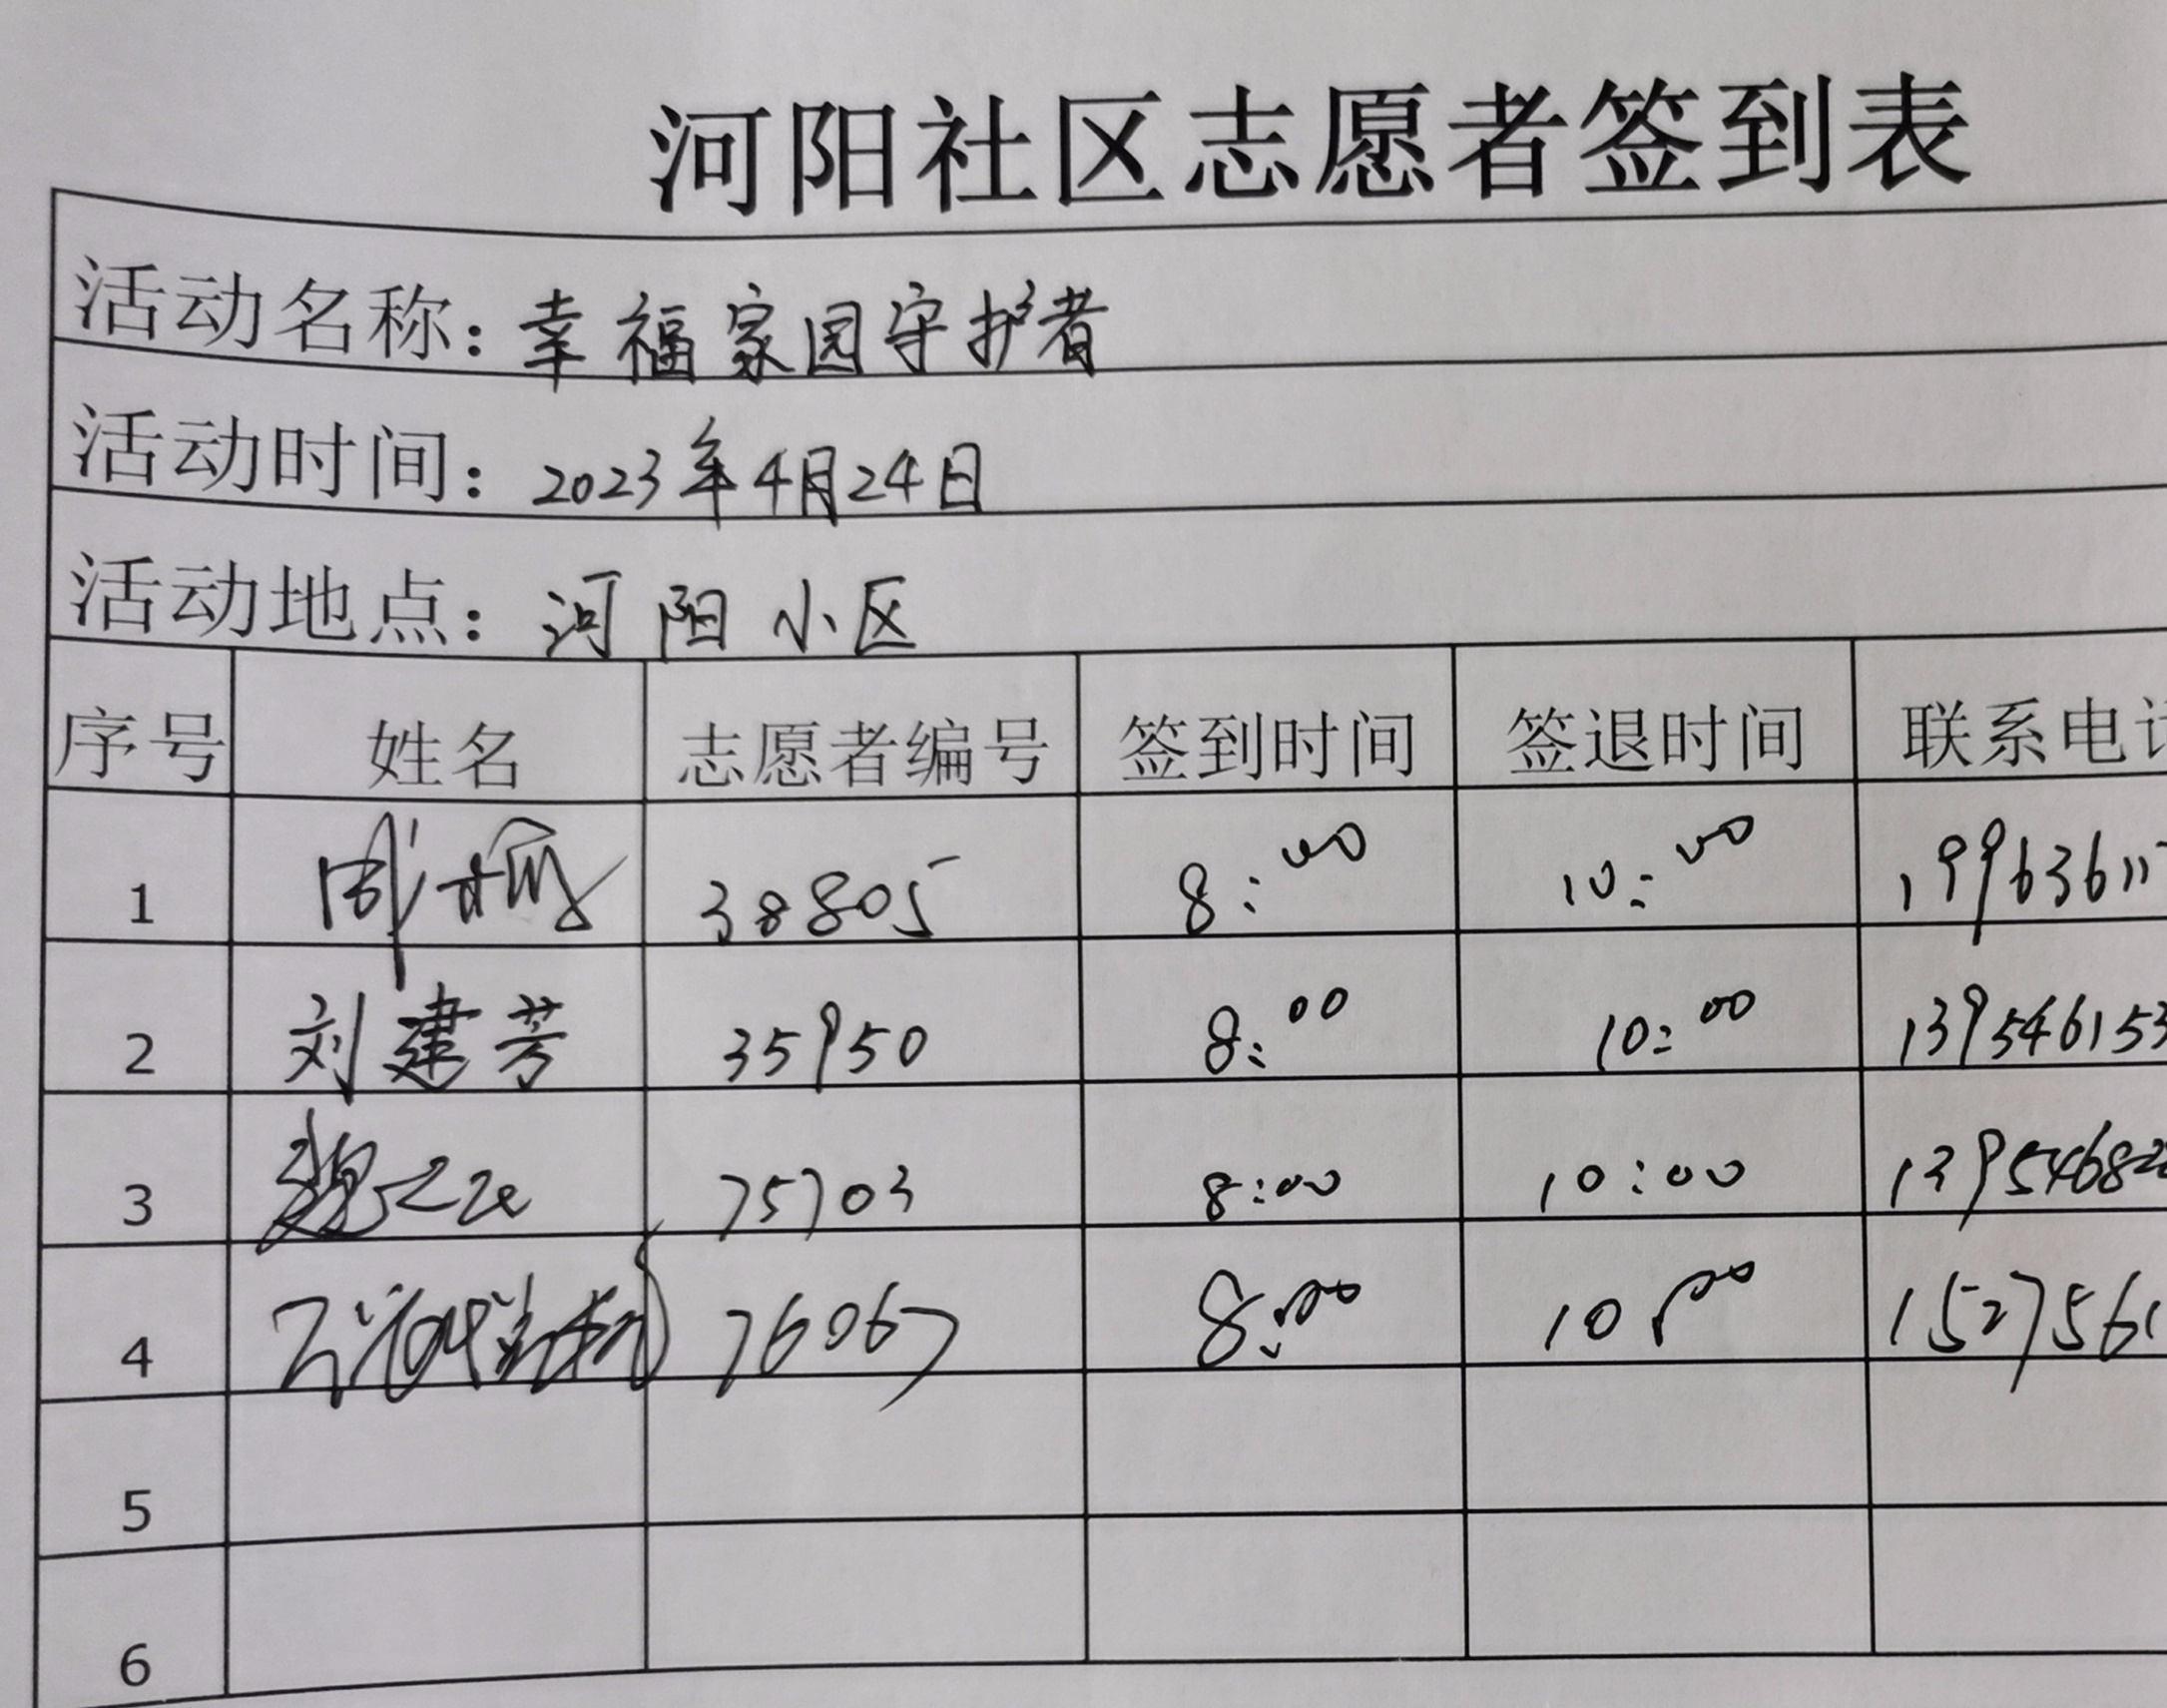 河阳社区志愿者签到表
活动名称：幸福家园守护者
活动时间：2023年4月24日
活动地点：河阳小区
序号 姓名 志愿者编号 签到时间 签退时间 联系电
1 38805 8:00 10:00 19963611
2 刘建芳 35950 8:00 10:00 139546153
3 75703 8:00 10:00 13954682
4 76067 8:00 10:00 1527561
5
6